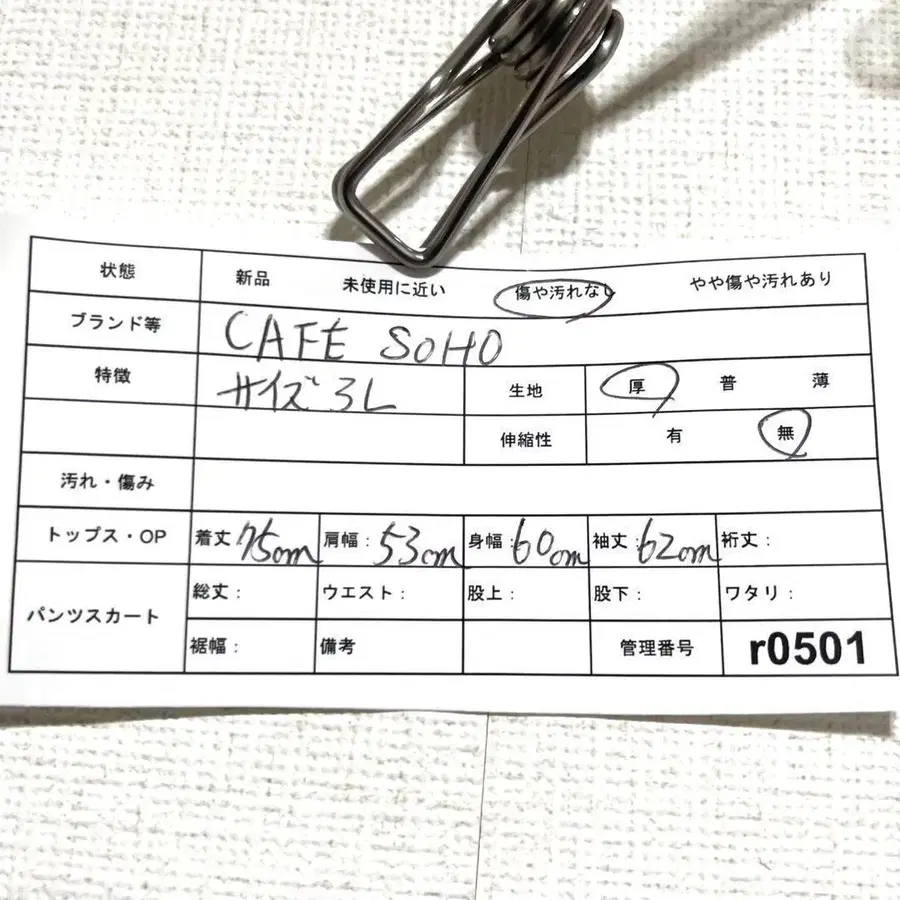 状態 新品 未使用に近い 傷や汚れなし やや傷や汚れあり
ブランド等 CAFE SOHO
特徴 サイズ 3L 生地 厚 普 薄
伸縮性 有 無
汚れ・傷み
トップス・OP 着丈 75cm 肩幅: 53cm 身幅: 60cm 袖丈: 62cm 裄丈:
パンツスカート 総丈: ウエスト: 股上: 股下: ワタリ:
裾幅: 備考 管理番号 r0501